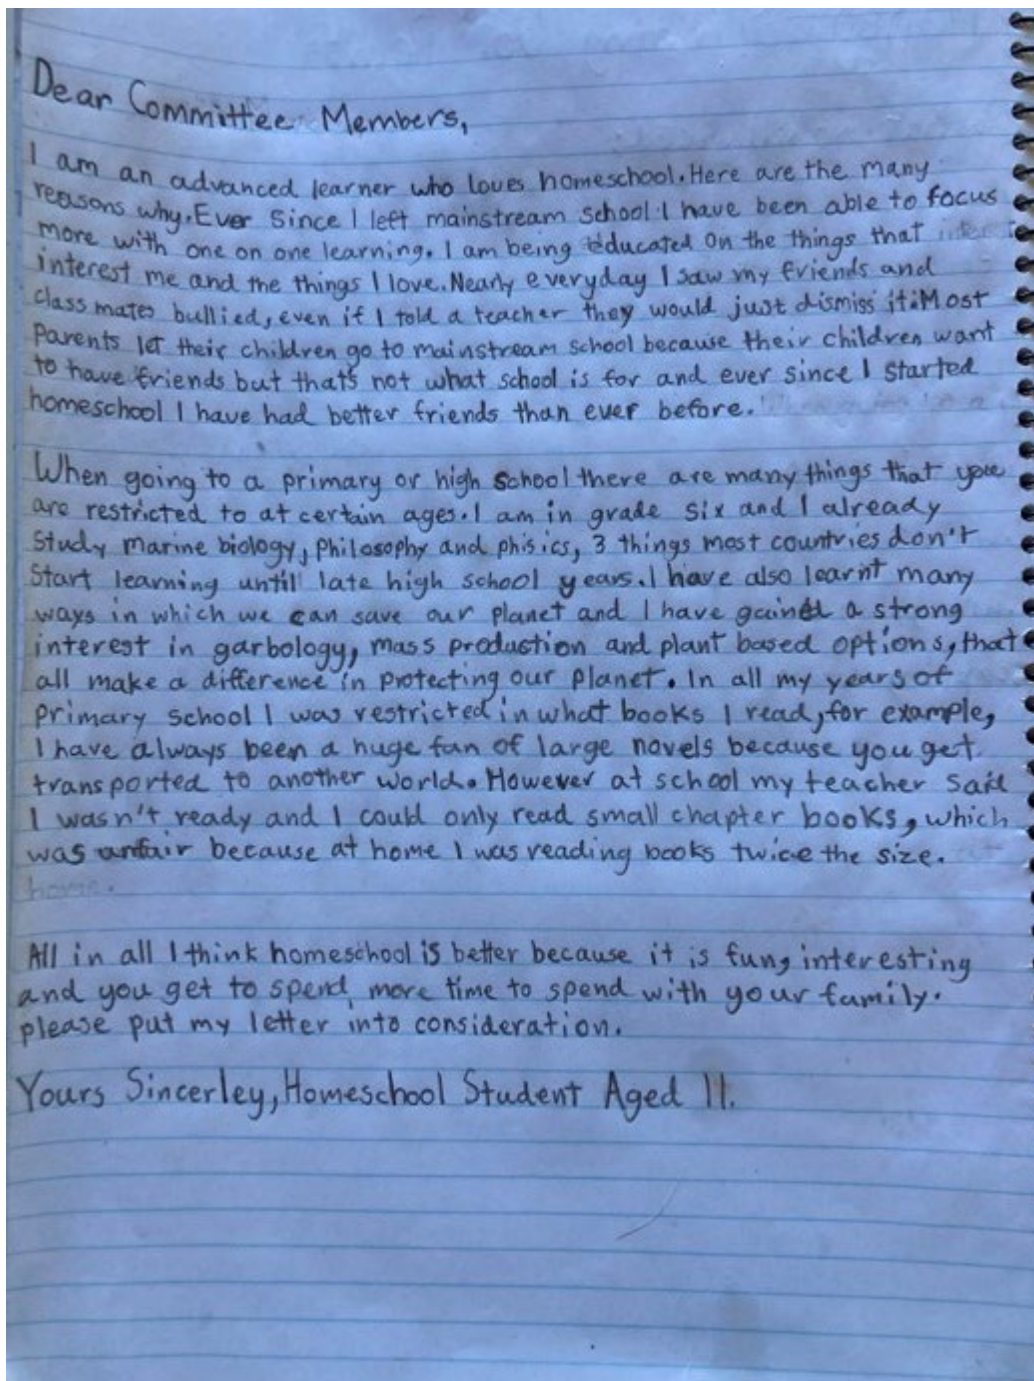 Dear Committee Members,
I am an advanced learner who loves homeschool. Here are the many
reasons why. Ever Since I left mainstream school I have been able to focus
more with one on one learning. I am being educated on the things that
interest me and the things I love. Nearly everyday I saw my friends and
class mates bullied, even if I told a teacher they would just dismiss it. Most
Parents let their children go to mainstream school because their children want
to have friends but that's not what school is for and ever since I started
homeschool I have had better friends than ever before.
When going to a primary or high school there are many things that you
are restricted to at certain ages. I am in grade six and I already
Study marine biology, philosophy and phisics, 3 things most countries don't
Start learning until late high school years. I have also learnt many
ways in which we can save our planet and I have gained a strong
interest in garbology, mass production and plant based options, that
all make a difference in protecting our planet. In all my years of
Primary school I was restricted in what books I read, for example,
I have always been a huge fan of large novels because you get
transported to another world. However at school my teacher said
I wasn't ready and I could only read small chapter books, which
was unfair because at home I was reading books twice the size.
home.
All in all I think homeschool is better because it is fun, interesting
and you get to spend more time to spend with your family.
please put my letter into consideration.
Yours Sincerley, Homeschool Student Aged 11.